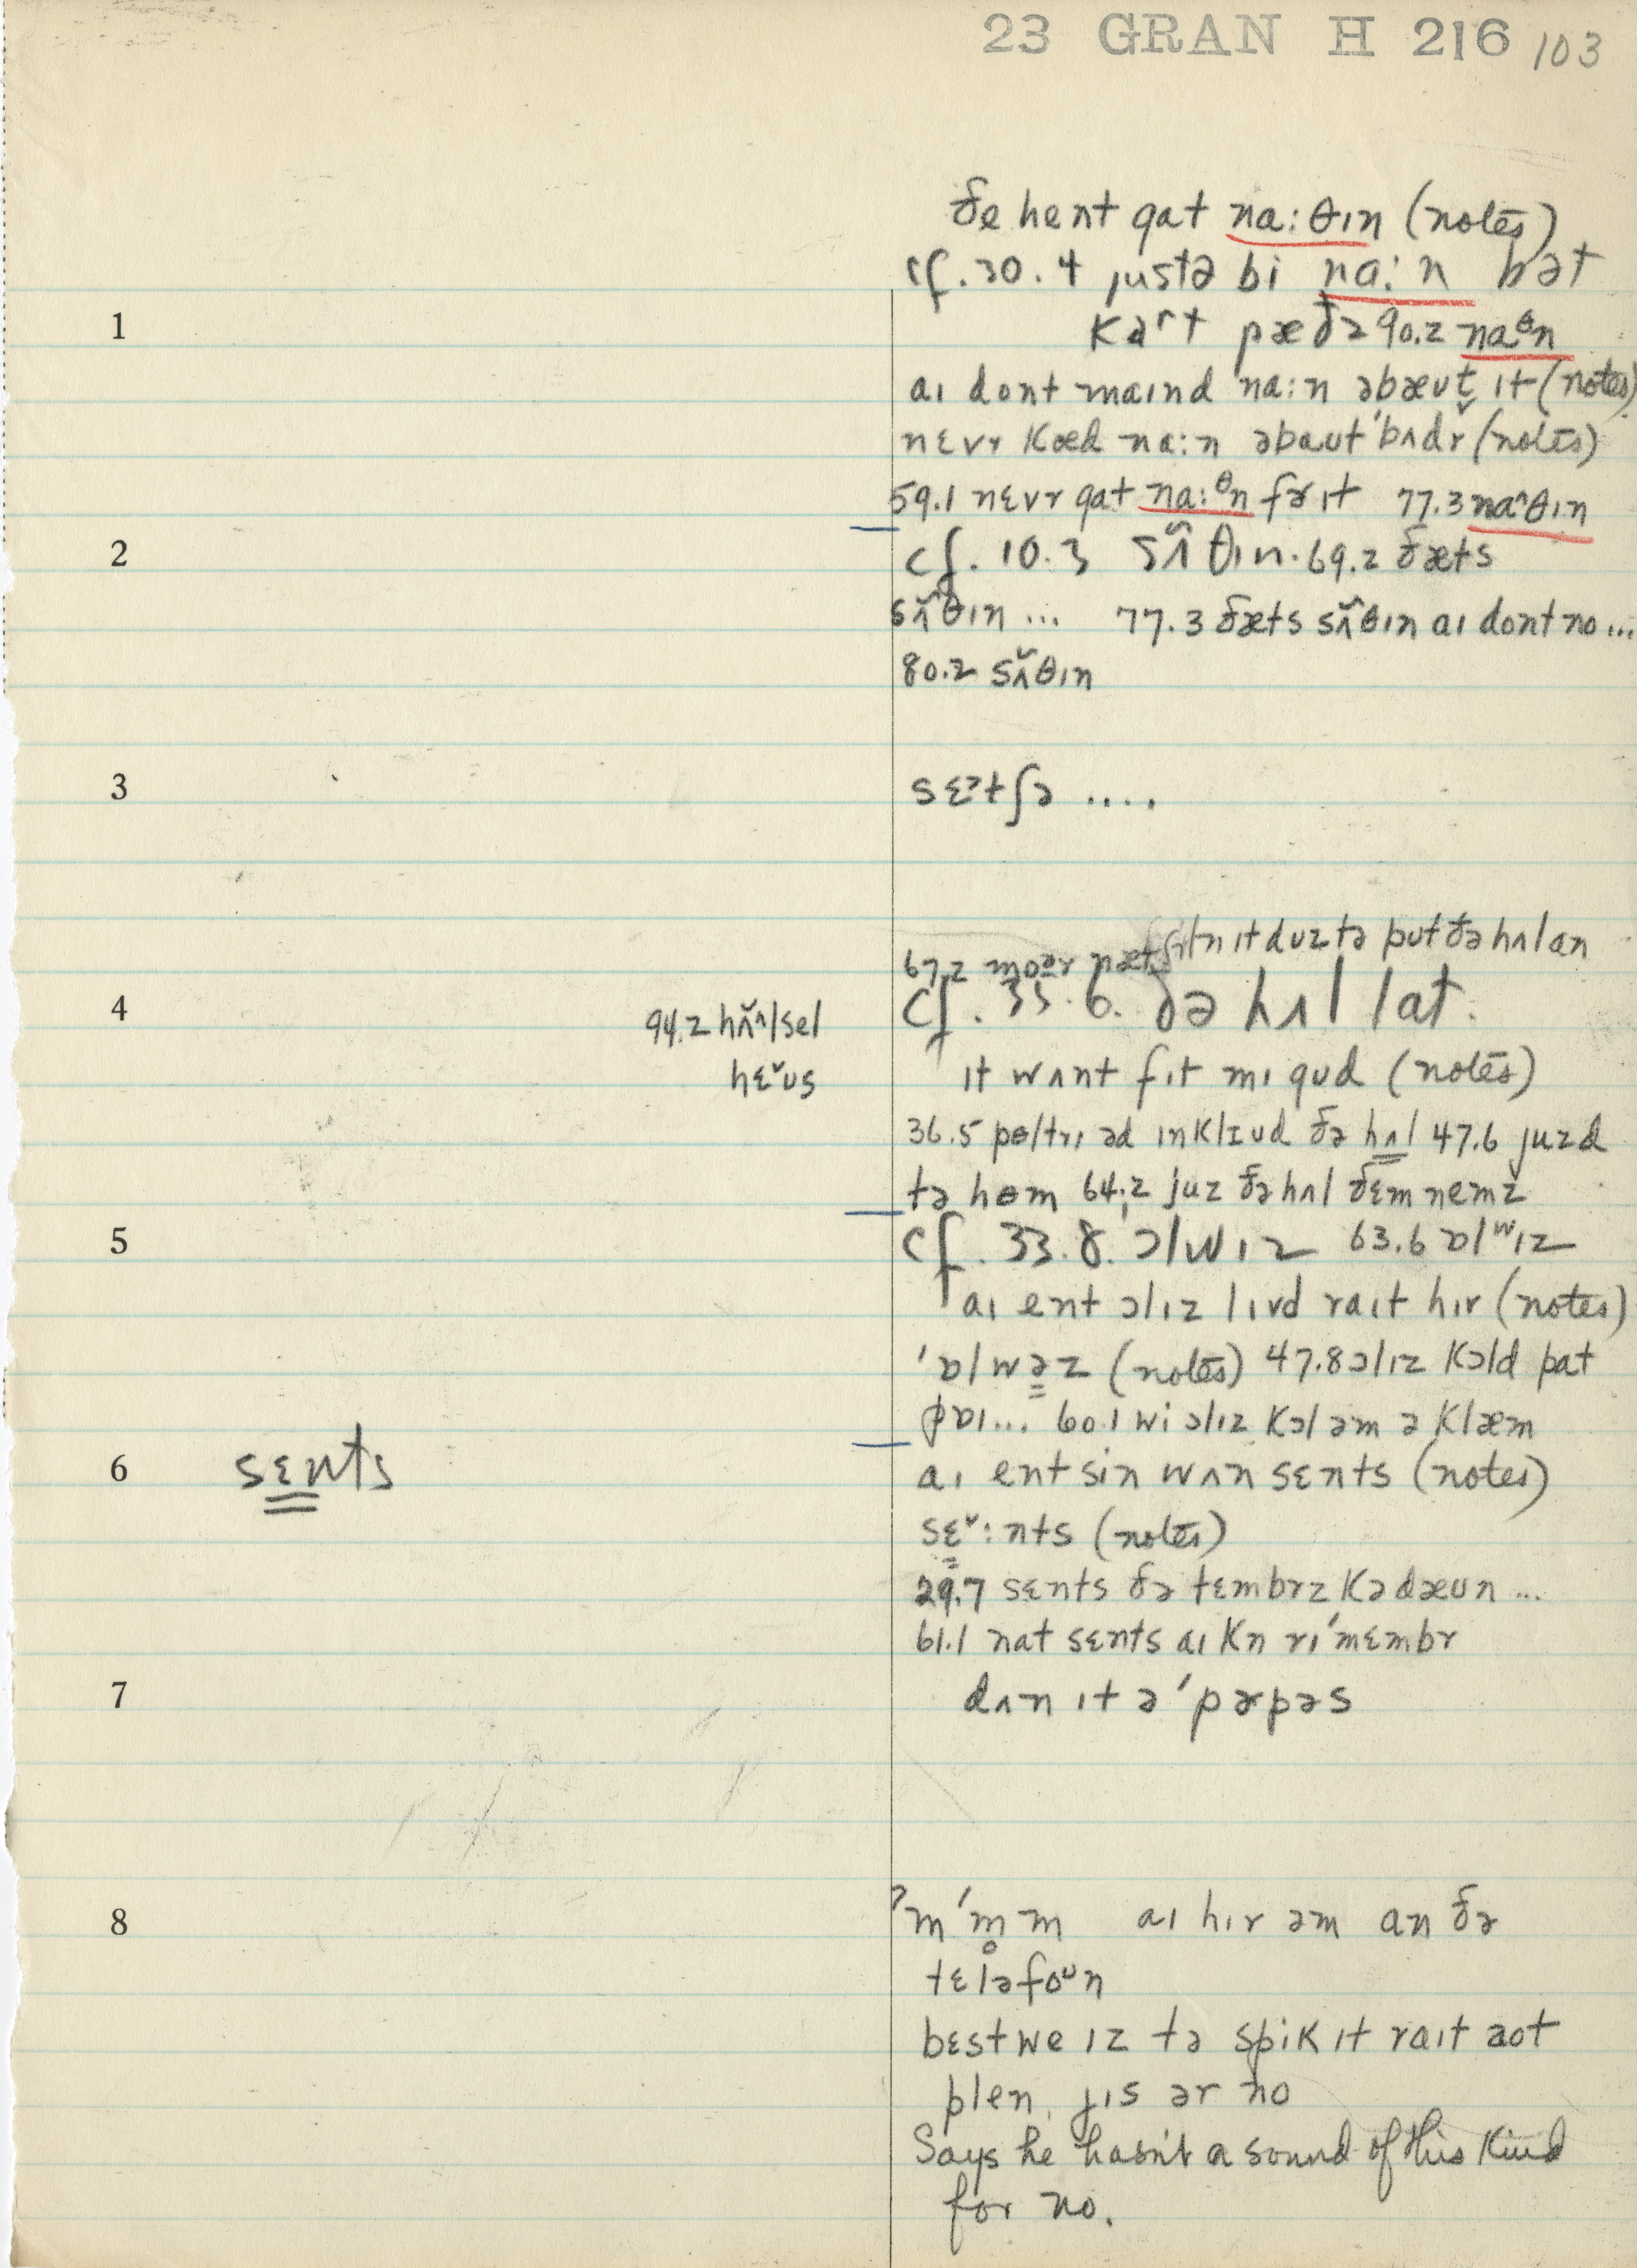 23 GRAN H 216 103
ðe hent gat na:θɪn (notes)
cf. 30.4 justə bi na:n bət
1 kɑrt pæðə 90.2 naθn
aɪ dont maɪnd na:n əbæʊt ɪt (notes)
nɛvr kæd na:n əbaʊt 'bʌdr (notes)
59.1 nɛvr gat na:θn fɚ ɪt 77.3 naˆθɪn
2 cf. 10.3 sʌ̃θɪn. 69.2 ðæts
sʌ̃θɪn ... 77.3 ðæts sʌ̃θɪn aɪ dont no ...
80.2 sʌ̃θɪn
3 sɛᵊtʃə ....
67.2 ɪt duz tə put ðə hʌl an
4 94.2 hʌ̆ʌlsel cf. 33.6. ðə hʌl lat.
hɛ̆ʊs ɪt wʌnt fɪt mɪ gud (notes)
36.5 pɵltrɪ əd ɪnklɪud ðə hʌl 47.6 juzd
tə hɵm 64.2 juz ðə hʌl ðɛm nemz
5 cf. 33.8. ɔlwɪz 63.6 ɒlʷɪz
aɪ ent ɔlɪz lɪvd raɪt hɪr (notes)
'ɒlwəz (notes) 47.8 ɔlɪz kɔld pat
pɒɪ... 60.1 wi ɔlɪz kɔl əm ə klæm
6 sɛnts aɪ ent sin wʌn sɛnts (notes)
sɛ˅:nts (notes)
29.7 sɛnts ðə tɛmbrz kə dæʊn ...
61.1 nat sɛnts aɪ kn rɪ'mɛmbr
7 dʌn ɪt ə'pɚpəs
8 ʔm'm̥m aɪ hɪr əm an ðə
tɛləfoʊn
bɛst we ɪz tə spik ɪt raɪt aot
plen. jɪs ər no
Says he hasn't a sound of this kind
for no.